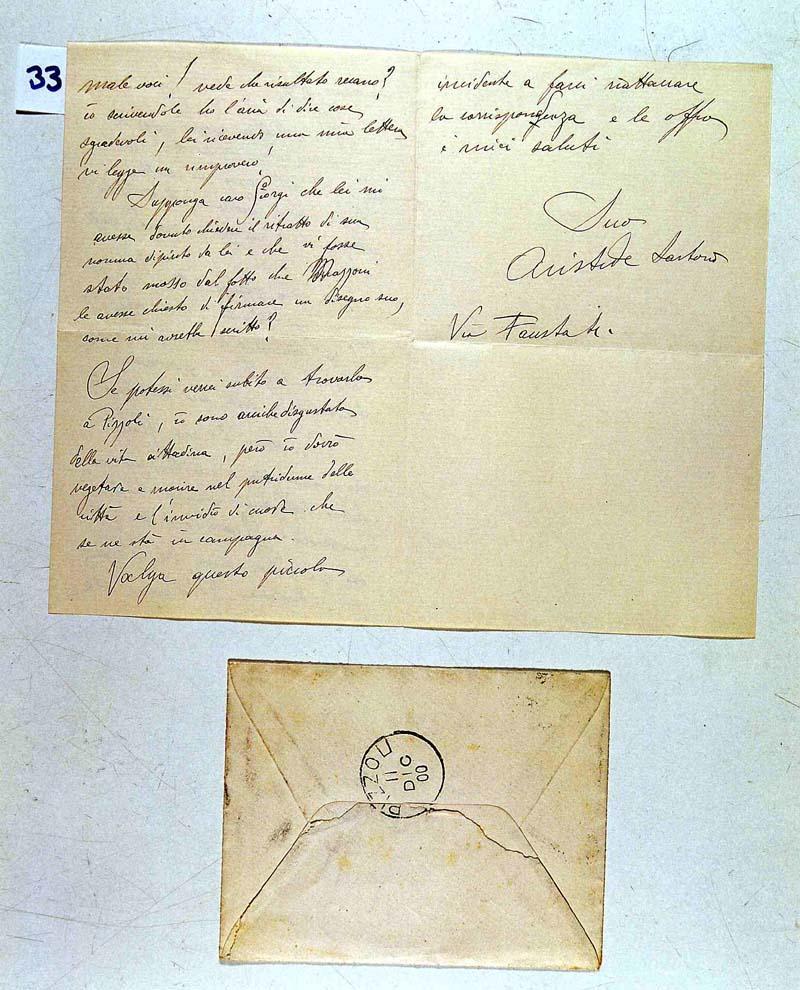 33
male voci! vede che risultato recano?
io scrivendole ho l'aria di dire cose
sgradevoli, lei ricevendo una mia lettera
vi legge un rimprovero!
Supponga caro Giorgi che lei mi
avesse dovuto chiedere il ritratto di sua
nonna dipinto da lei e che vi fosse
stato mosso dal fatto che Mazzoni
le avesse chiesto di firmare un disegno suo,
come mi avrebbe scritto?
Se potessi verrei subito a trovarla
a Pizzoli, io sono anche disgustato
della vita cittadina, però io dovrò
vegetare e morire nel putridume delle
città e l'invidio di cuore che
se ne stà in campagna.
Valga questo piccolo
incidente a farci riattaccare
la corrispondenza e le offro
i miei saluti
Suo
Aristide Sartorio
Via Fausta
PIZZOLI
11
DIC
00